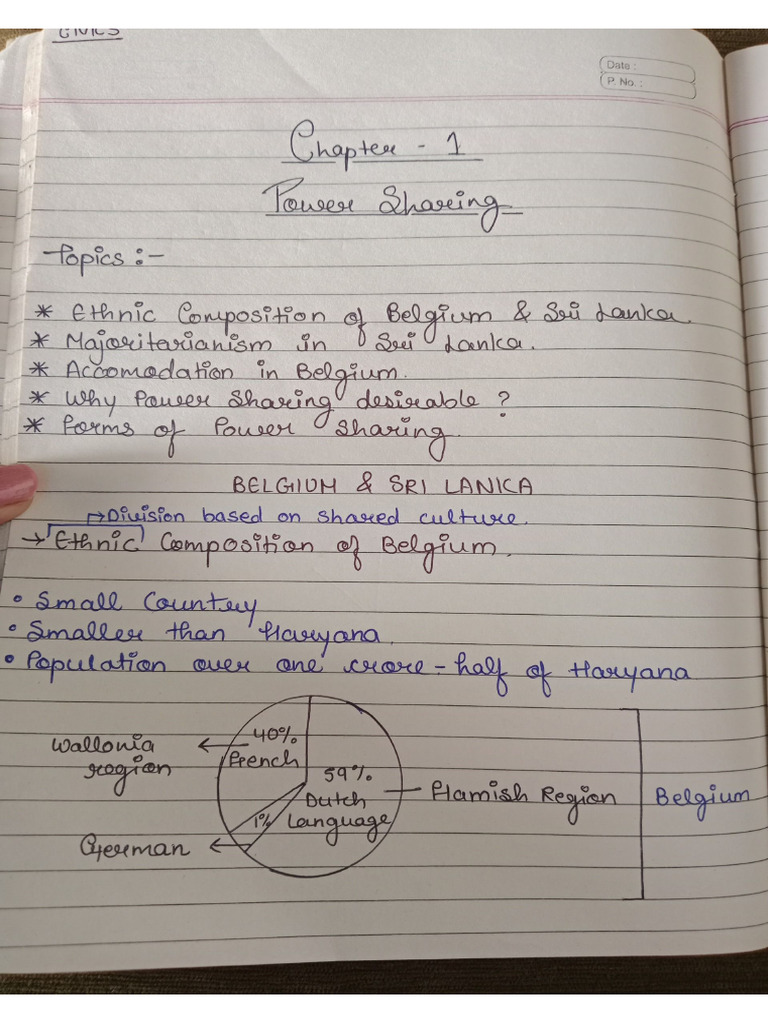 CIVICS
Date :
P. No. :
Chapter - 1
Power Sharing
Topics :-
* Ethnic Composition of Belgium & Sri Lanka.
* Majoritarianism in Sri Lanka.
* Accomodation in Belgium.
* Why Power Sharing desirable ?
* Forms of Power Sharing.
BELGIUM & SRI LANKA
↳Division based on shared culture.
→ Ethnic Composition of Belgium.
• Small Country
• Smaller than Haryana.
• Population over one crore - half of Haryana
Wallonia region ← 40% French
59% Dutch Language — Flamish Region
Belgium
German ← 1%